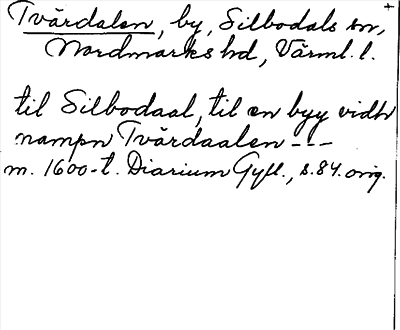 Tvärdalen, by, Silbodals sn,
Nordmarks hd, Värml. l.
til Silbodaal, til en byy vidh
nampn Tvärdaalen ---
m. 1600-t. Diarium Gyll., s. 84. orig.